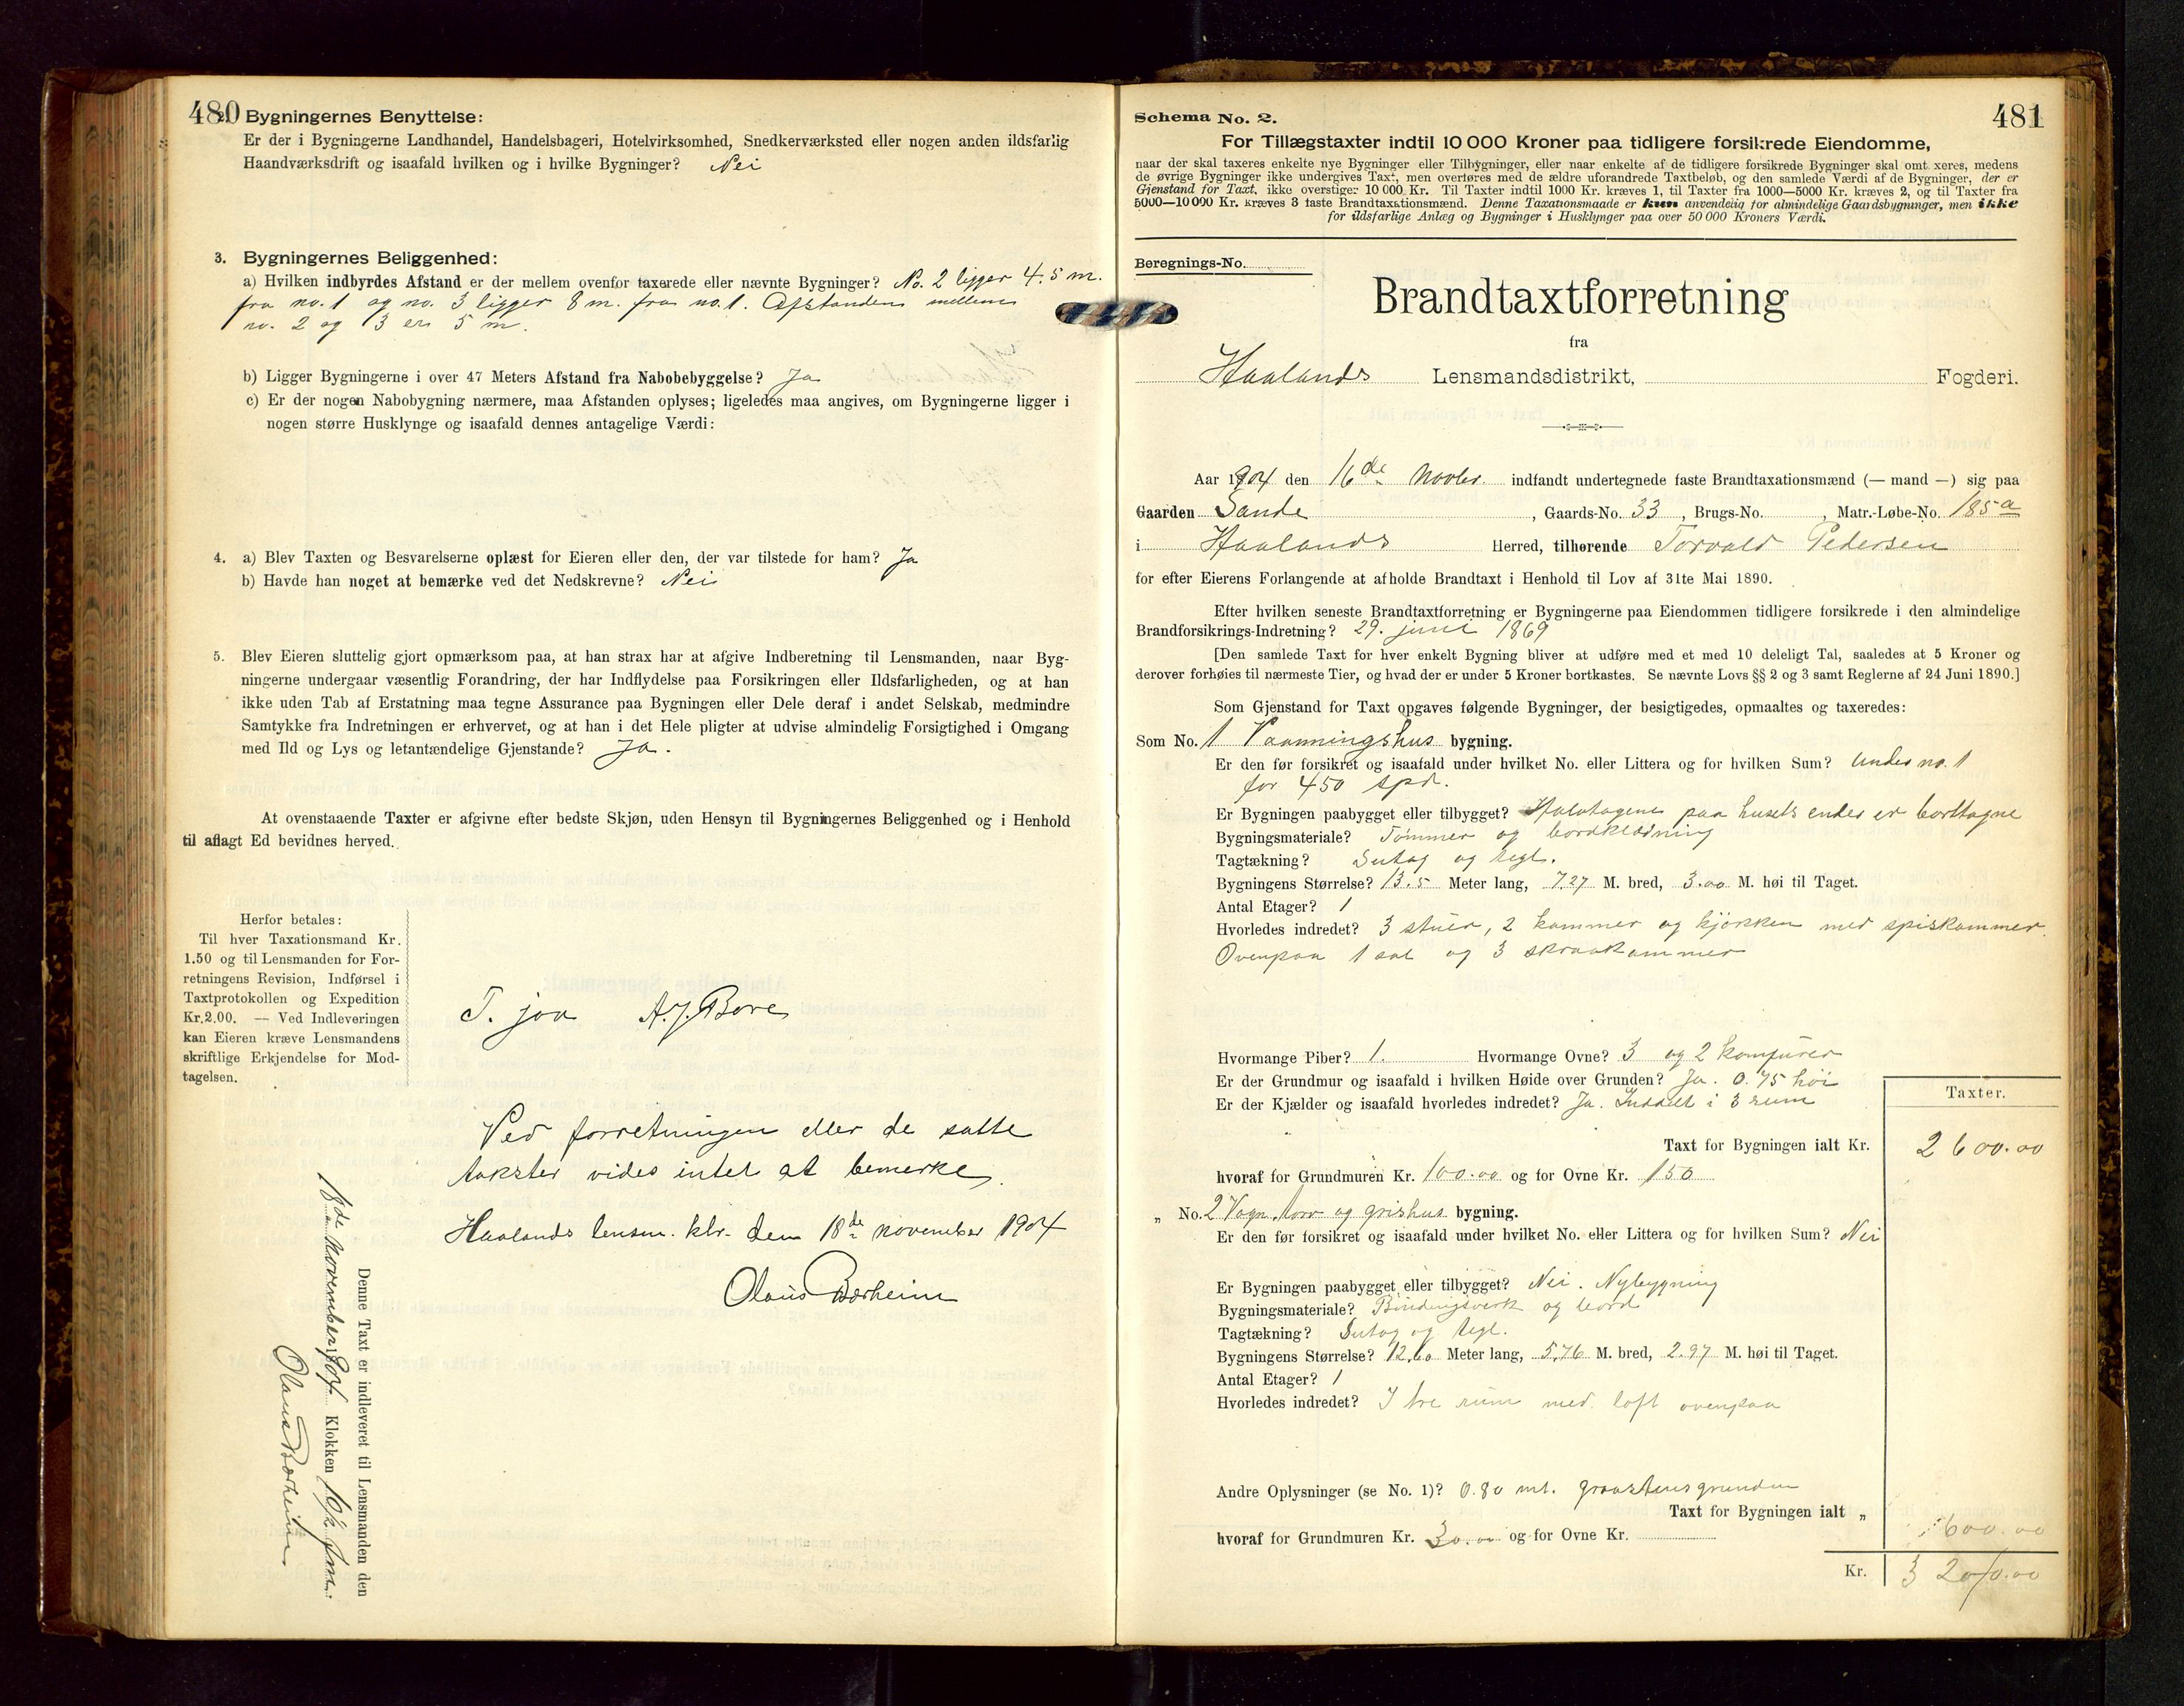 480
2. Bygningernes Benyttelse:
Er der i Bygningerne Landhandel, Handelsbageri, Hotelvirksomhed, Snedkerværksted eller nogen anden ildsfarlig
Haandværksdrift og isaafald hvilken og i hvilke Bygninger? Nei
3. Bygningernes Beliggenhed:
a) Hvilken indbyrdes Afstand er der mellem ovenfor taxerede eller nævnte Bygninger? No. 2 ligger 4.5 m.
fra no. 1 og no. 3 ligger 8 m. fra no. 1. Afstanden mellem
no. 2 og 3 er 5 m.
b) Ligger Bygningerne i over 47 Meters Afstand fra Nabobebyggelse? Ja
c) Er der nogen Nabobygning nærmere, maa Afstanden oplyses; ligeledes maa angives, om Bygningerne ligger i
nogen større Husklynge og isaafald dennes antagelige Værdi:
4. a) Blev Taxten og Besvarelserne oplæst for Eieren eller den, der var tilstede for ham? Ja
b) Havde han noget at bemærke ved det Nedskrevne? Nei
5. Blev Eieren sluttelig gjort opmærksom paa, at han strax har at afgive Indberetning til Lensmanden, naar Byg-
ningerne undergaar væsentlig Forandring, der har Indflydelse paa Forsikringen eller Ildsfarligheden, og at han
ikke uden Tab af Erstatning maa tegne Assurance paa Bygningen eller Dele deraf i andet Selskab, medmindre
Samtykke fra Indretningen er erhvervet, og at han i det Hele pligter at udvise almindelig Forsigtighed i Omgang
med Ild og Lys og letantændelige Gjenstande? Ja.
At ovenstaaende Taxter er afgivne efter bedste Skjøn, uden Hensyn til Bygningernes Beliggenhed og i Henhold
til aflagt Ed bevidnes herved.
Herfor betales:
Til hver Taxationsmand Kr.
1.50 og til Lensmanden for For-
retningens Revision, Indførsel i
Taxtprotokollen og Expedition
Kr.2.00. — Ved Indleveringen
kan Eieren kræve Lensmandens
skriftlige Erkjendelse for Mod-
tagelsen.
T. joa A.J. Bore
Ved forretningen eller de satte
takster vides intet at bemerke.
Haalands lensm. ktr. den 18de november 1904
Olaus Bærheim
Denne Taxt er indleveret til Lensmanden den
18de november 1904 Klokken 10½ fm.
Olaus Bærheim
481
Schema No. 2.
For Tillægstaxter indtil 10 000 Kroner paa tidligere forsikrede Eiendomme,
naar der skal taxeres enkelte nye Bygninger eller Tilbygninger, eller naar enkelte af de tidligere forsikrede Bygninger skal omt xeres, medens
de øvrige Bygninger ikke undergives Taxt, men overføres med de ældre uforandrede Taxtbeløb, og den samlede Værdi af de Bygninger, der er
Gjenstand for Taxt, ikke overstiger 10 000 Kr. Til Taxter indtil 1000 Kr. kræves 1, til Taxter fra 1000—5000 Kr. kræves 2, og til Taxter fra
5000—10 000 Kr. kræves 3 faste Brandtaxationsmænd. Denne Taxationsmaade er kun anvendelig for almindelige Gaardsbygninger, men ikke
for ildsfarlige Anlæg og Bygninger i Husklynger paa over 50 000 Kroners Værdi.
Beregnings-No.
Brandtaxtforretning
fra
Haalands Lensmandsdistrikt, Fogderi.
Aar 1904 den 16de novbr. indfandt undertegnede faste Brandtaxationsmænd (— mand —) sig paa
Gaarden Sande, Gaards-No. 33, Brugs-No. , Matr.-Løbe-No. 185a
i Haalands Herred, tilhørende Torvald Pedersen
for efter Eierens Forlangende at afholde Brandtaxt i Henhold til Lov af 31te Mai 1890.
Efter hvilken seneste Brandtaxtforretning er Bygningerne paa Eiendommen tidligere forsikrede i den almindelige
Brandforsikrings-Indretning? 29. juni 1869
[Den samlede Taxt for hver enkelt Bygning bliver at udføre med et med 10 deleligt Tal, saaledes at 5 Kroner og
derover forhøies til nærmeste Tier, og hvad der er under 5 Kroner bortkastes. Se nævnte Lovs §§ 2 og 3 samt Reglerne af 24 Juni 1890.]
Som Gjenstand for Taxt opgaves følgende Bygninger, der besigtigedes, opmaaltes og taxeredes:
Som No. 1 Vaaningshus bygning.
Er den før forsikret og isaafald under hvilket No. eller Littera og for hvilken Sum? Under no. 1
for 450 spd.
Er Bygningen paabygget eller tilbygget? Halvtagene paa husets ender er borttagne
Bygningsmateriale? Tømmer og bordklædning
Tagtækning? Sutag og tegl.
Bygningens Størrelse? 13.5 Meter lang, 7.27 M. bred, 3.00 M. høi til Taget.
Antal Etager? 1
Hvorledes indredet? 3 stuer, 2 kammer og kjøkken med spiskammer.
Ovenpaa 1 sal og 3 skraakammer
Hvormange Piber? 1. Hvormange Ovne? 3 og 2 komfurer
Er der Grundmur og isaafald i hvilken Høide over Grunden? Ja. 0.75 høi
Er der Kjælder og isaafald hvorledes indredet? Ja. Inddelt i 3 rum
Taxter.
Taxt for Bygningen ialt Kr. 2600.00
hvoraf for Grundmuren Kr. 100.00 og for Ovne Kr. 150
„ No. 2 Vogn, torv og grishus bygning.
Er den før forsikret og isaafald under hvilket No. eller Littera og for hvilken Sum? Nei
Er Bygningen paabygget eller tilbygget? Nei. Nybygning
Bygningsmateriale? Bindingsverk og bord
Tagtækning? Sutag og tegl.
Bygningens Størrelse? 12.60 Meter lang, 5.76 M. bred, 2.97 M. høi til Taget.
Antal Etager? 1
Hvorledes indredet? I tre rum med loft ovenpaa
Andre Oplysninger (se No. 1)? 0.80 mt. graastensgrunden
Taxt for Bygningen ialt „ 600.00
hvoraf for Grundmuren Kr. 30.00 og for Ovne Kr.
Kr. 3200.00